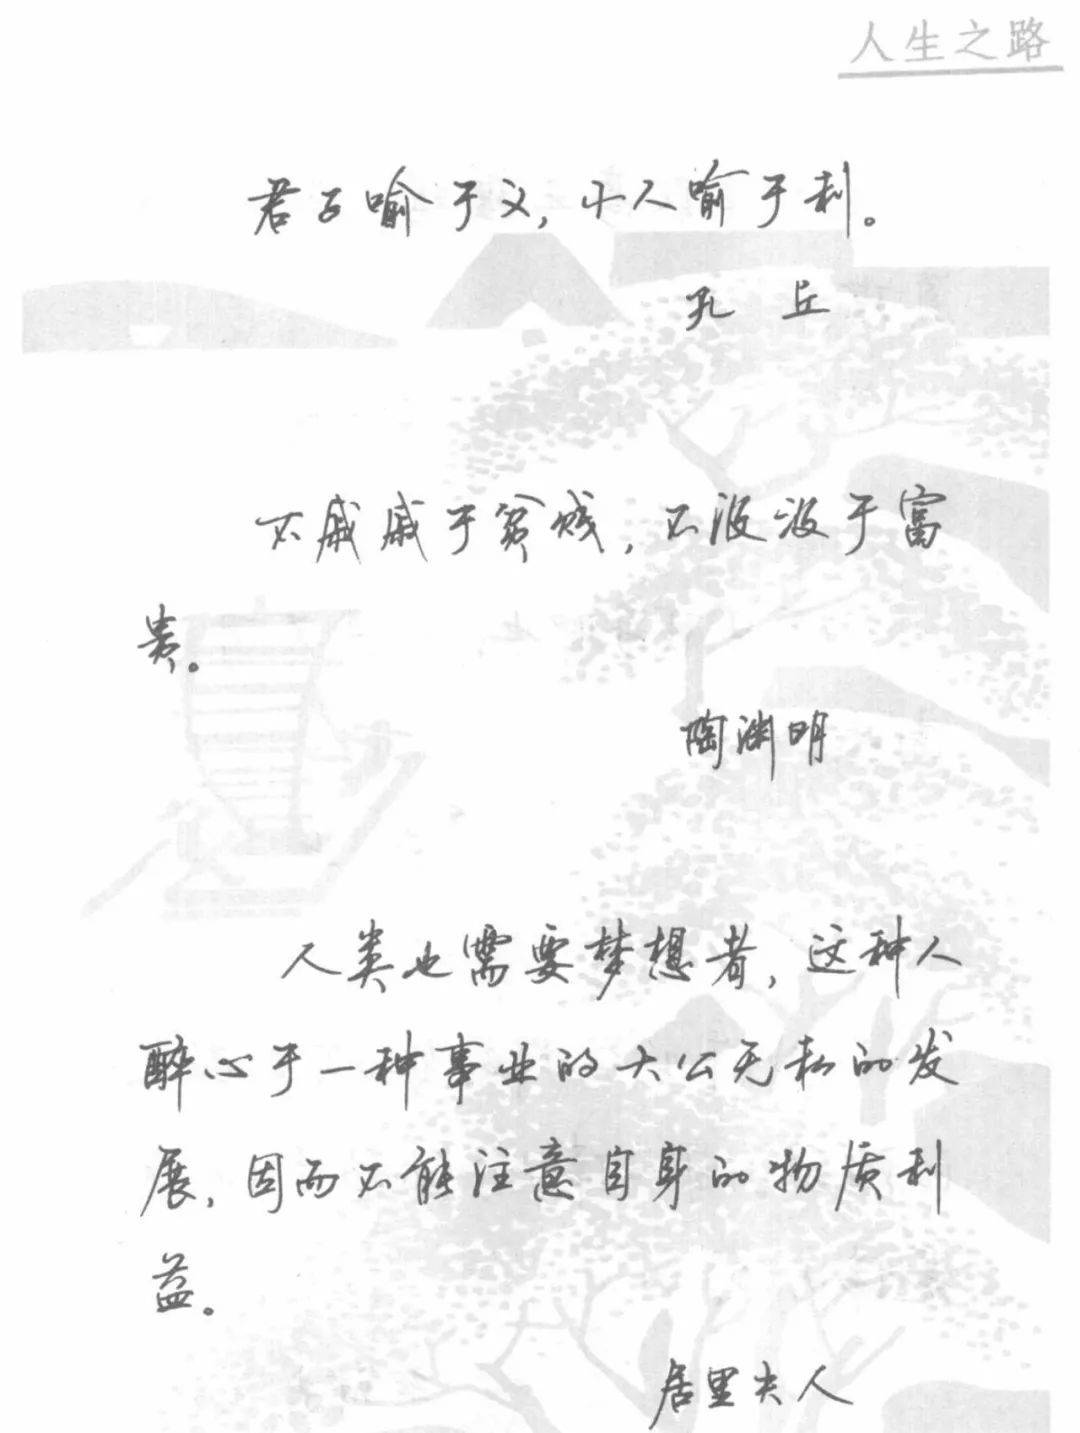 人生之路
君子喻于义,小人喻于利。
孔丘
不戚戚于贫贱,不汲汲于富
贵。
陶渊明
人类也需要梦想者,这种人
醉心于一种事业的大公无私的发
展,因而不能注意自身的物质利
益。
居里夫人